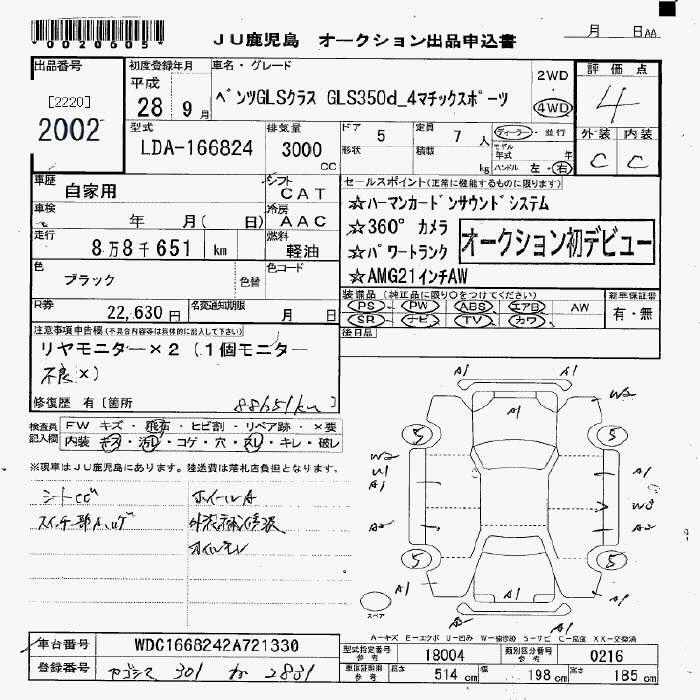 *0020605*
JU鹿児島 オークション出品申込書
月 日AA
出品番号
[2220]
2002
初度登録年月
平成
28 9月
車名・グレード
ベンツGLSクラス GLS350d_4マチックスポーツ
2WD
4WD
評価点
4
外装 内装
C C
型式
LDA-166824
排気量
3000
CC
ドア 5
形状
定員 7 人
積載 kg
ディーラー・並行
モデル年式 年
ハンドル 左・右
車歴
自家用
シフト
CAT
車検
年 月( 日)
冷房
AAC
走行
8万8千651 km
燃料
軽油
色
ブラック
色替
色コード
R券
22,630円
名変通知期限
月 日
セールスポイント(正常に機能するものに限ります)
☆ハーマンカードンサウンドシステム
☆360° カメラ
☆パワートランク
☆AMG21インチAW
オークション初デビュー
装備品(純正品に限り○をつけてください)
PS PW ABS エアB AW
SR ナビ TV カワ
新車保証書
有・無
後日品
注意事項申告欄(不具合内容等は具体的に記入して下さい)
リヤモニター×2(1個モニター
不良×)
修復歴 有[箇所
88651km
検査員
記入欄
FW キズ・飛石・ヒビ割・リペア跡・×要
内装 キズ・汚レ・コゲ・穴・スレ・キレ・破レ
※現車はJU鹿児島にあります。陸送費は落札店負担となります。
スイッチ部ハゲ
ホイールA
A1 A1
A1
W2
5 5
W2
W1
A1
A1
W3
A2 A2
5 5
A1 A1 A1
A1
スペア
A-キズ E-エクボ U-凹み W-補修跡 S-サビ C-腐食 XX-交換済
車台番号
WDC1668242A721330
登録番号
カゴシマ 301 2831
型式指定番号
参考
18004
類別区分番号
参考
0216
車庫証明用
参考
長さ 514 cm
幅 198 cm
高さ 185 cm